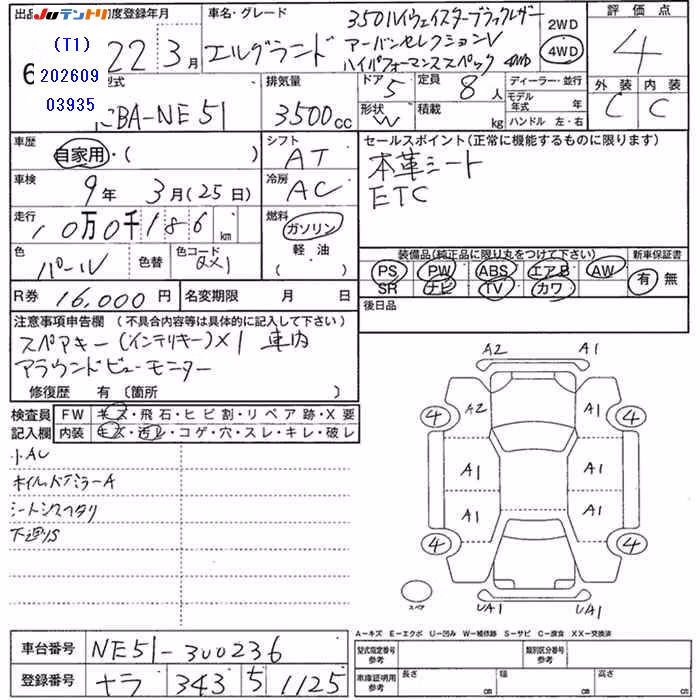 JUテントリ
(T1)
202609
03935
出品
度登録年月
22年3月
車名・グレード
エルグランド
350ハイウェイスターブラックレザー
アーバンセレクションV
ハイパフォーマンススペック 4WD
2WD
4WD
評価点
4
外装 内装
C C
型式
CBA-NE51
排気量
3500cc
ドア
5
形状
W
定員
8人
積載
kg
ディーラー・並行
モデル年式 年
ハンドル 左・右
車歴
自家用・( )
シフト
AT
車検
9年 3月(25日)
冷房
AC
セールスポイント(正常に機能するものに限ります)
本革シート
ETC
走行
10万0千186km
燃料
ガソリン
軽油
( )
色
パール
色替
色コード
QX1
装備品(純正品に限り丸をつけて下さい)
新車保証書
PS PW ABS エアB AW
SR ナビ TV カワ
有 無
R券
16,000円
名変期限 月 日
後日品
注意事項申告欄 (不具合内容等は具体的に記入して下さい)
スペアキー(インテリキー)×1 車内
アラウンドビューモニター
修復歴 有(箇所 )
検査員
記入欄
FW キズ・飛石・ヒビ割・リペア跡・X要
内装 キズ・汚レ・コゲ・穴・スレ・キレ・破レ
小AU
ホイル、ドアミラーA
シートシワ、スワリ
下廻りS
A2 A1
4 A2 A1 4
A1 A1
A1 A1
4 4
UA1 UA1
スペア
A-キズ E-エクボ U-凹み W-補修跡 S-サビ C-腐食 XX-交換済
車台番号
NE51-300236
登録番号
ナラ 343 ち 1125
型式指定番号
参考
類別区分番号
参考
車庫証明用
参考
長さ cm
幅 cm
高さ cm